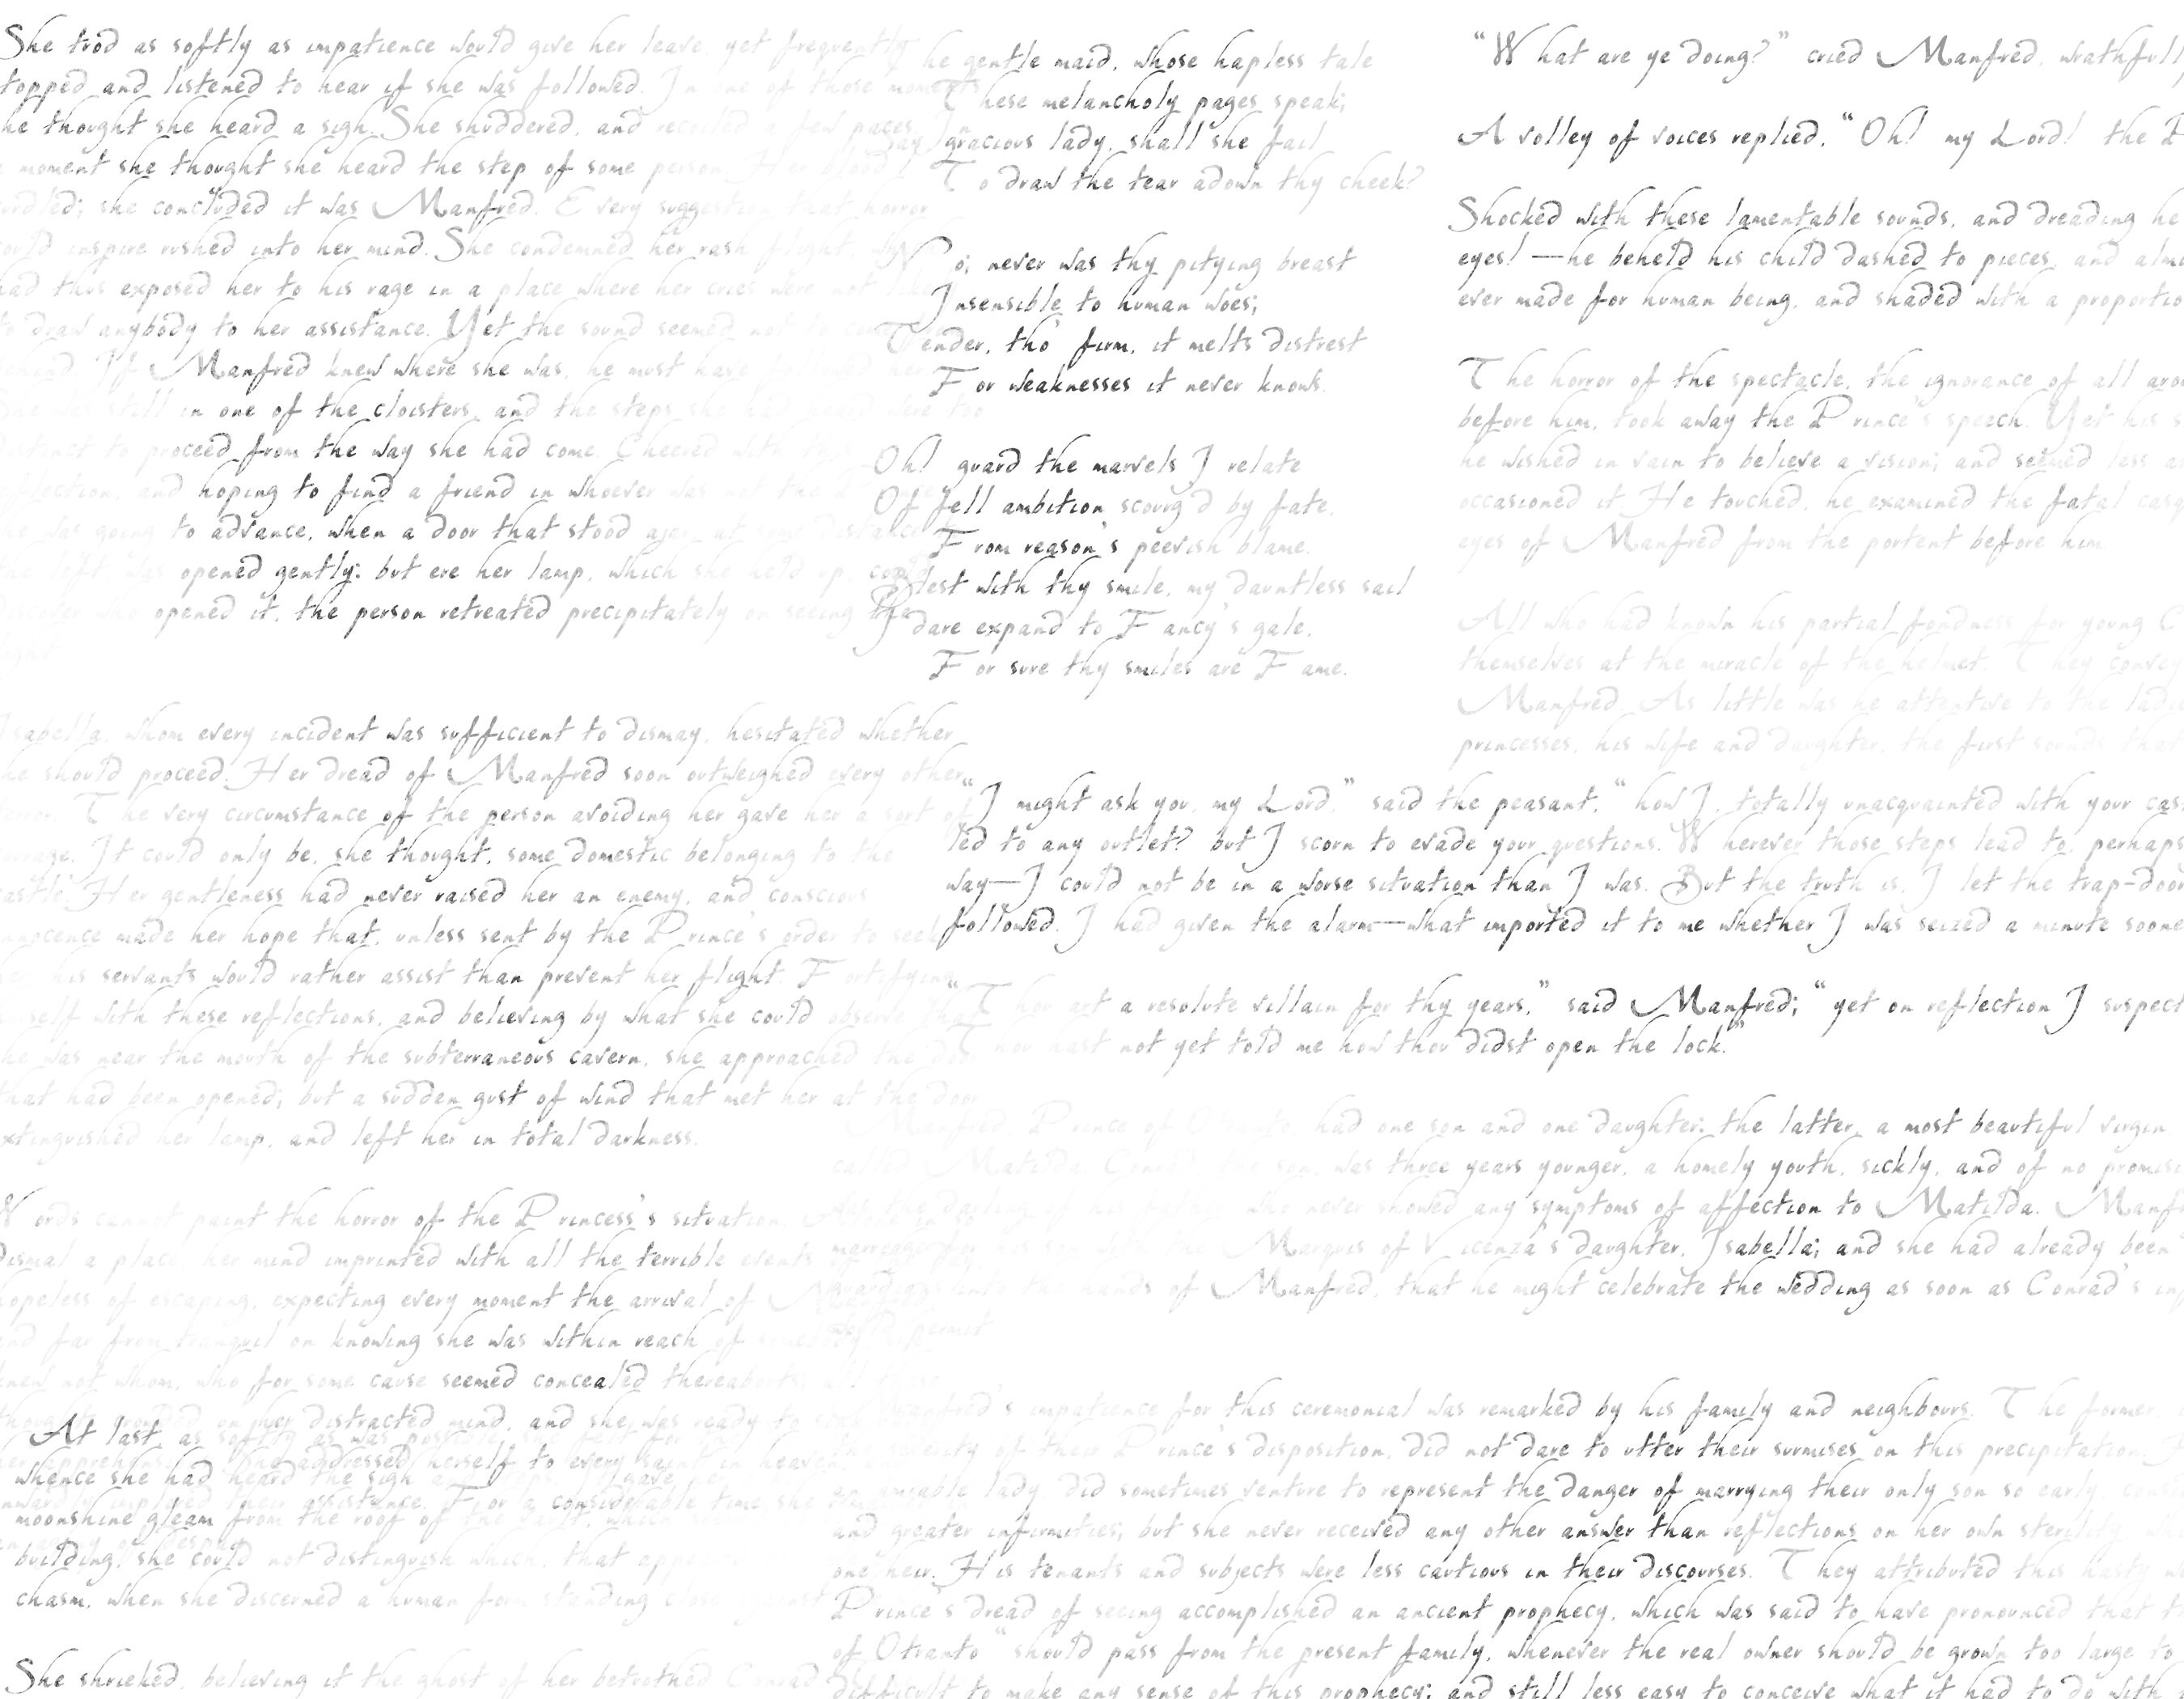 She trod as softly as impatience would give her leave, yet frequently
topped and listened to hear if she was followed. In one of those moments
he thought she heard a sigh. She shuddered, and recoiled a few paces. In
moment she thought she heard the step of some person. Her blood
urdled; she concluded it was Manfred. Every suggestion that horror
ould inspire rushed into her mind. She condemned her rash flight, which
had thus exposed her to his rage in a place where her cries were not likely
to draw anybody to her assistance. Yet the sound seemed not
behind. If Manfred knew where she was, he must have
She was still in one of the cloisters, and the steps she had heard were too
distinct to proceed from the way she had come. Cheered with this
reflection, and hoping to find a friend in whoever was not the
she was going to advance, when a door that stood ajar, at some distance
was opened gently: but ere her lamp, which she held up, could
discover who opened it, the person retreated precipitately on seeing the
light.
Isabella, whom every incident was sufficient to dismay, hesitated whether
he should proceed. Her dread of Manfred soon outweighed every other
terror. The very circumstance of the person avoiding her gave her a sort of
courage. It could only be, she thought, some domestic belonging to the
castle. Her gentleness had never raised her an enemy, and conscious
innocence made her hope that, unless sent by the Prince's order to seek
her, his servants would rather assist than prevent her flight. Fortifying
herself with these reflections, and believing by what she could observe
he was near the mouth of the subterraneous cavern, she approached the
that had been opened; but a sudden gust of wind that met her at the door
xtinguished her lamp, and left her in total darkness.
Words cannot paint the horror of the Princess's situation.
dismal a place, her mind imprinted with all the terrible events of
hopeless of escaping, expecting every moment the arrival of
and far from tranquil on knowing she was within reach of
knew not whom, who for some cause seemed concealed thereabouts; all
thoughts crowded on her distracted mind, and she was ready to
her apprehensions. She addressed herself to every saint in heaven,
inwardly implored their assistance. For a considerable time she
At last, as softly as was possible,
whence she had heard the sigh
moonshine gleam from the roof of the vault, which
building, she could not distinguish which, that
chasm, when she discerned a human form standing close against
She shrieked, believing it the ghost of her betrothed Conrad
he gentle maid, whose hapless tale
These melancholy pages speak;
Say, gracious lady, shall she fail
To draw the tear adown thy cheek?
No; never was thy pitying breast
Insensible to human woes;
Tender, tho' firm, it melts distrest
For weaknesses it never knows.
Oh! guard the marvels I relate
Of fell ambition scourg'd by fate,
From reason's peevish blame.
Blest with thy smile, my dauntless sail
I dare expand to Fancy's gale,
For sure thy smiles are Fame.
“What are ye doing?” cried Manfred, wrathfull
A volley of voices replied, “Oh! my Lord! the P
Shocked with these lamentable sounds, and dreading he
eyes! —he beheld his child dashed to pieces, and almo
ever made for human being, and shaded with a proportio
The horror of the spectacle, the ignorance of all arou
before him, took away the Prince's speech. Yet his s
he wished in vain to believe a vision; and seemed less a
occasioned it. He touched, he examined the fatal casq
eyes of Manfred from the portent before him.
All who had known his partial fondness for young C
themselves at the miracle of the helmet. They convey
Manfred. As little was he attentive to the lad
princesses, his wife and daughter, the first sounds that
“I might ask you, my Lord,” said the peasant, “how I, totally unacquainted with your cas
led to any outlet? but I scorn to evade your questions. Wherever those steps lead to, perhaps
way—I could not be in a worse situation than I was. But the truth is, I let the trap-door
followed. I had given the alarm—what imported it to me whether I was seized a minute soone
“Thou art a resolute villain for thy years,” said Manfred; “yet on reflection I suspect
Thou hast not yet told me how thou didst open the lock.”
Manfred, Prince of Otranto, had one son and one daughter: the latter, a most beautiful virgin
called Matilda. Conrad, the son, was three years younger, a homely youth, sickly, and of no promisi
was the darling of his father, who never showed any symptoms of affection to Matilda. Manf
marriage for his son with the Marquis of Vicenza's daughter, Isabella; and she had already been
guardians into the hands of Manfred, that he might celebrate the wedding as soon as Conrad's inf
would permit.
Manfred's impatience for this ceremonial was remarked by his family and neighbours. The former
severity of their Prince's disposition, did not dare to utter their surmises on this precipitation.
an amiable lady, did sometimes venture to represent the danger of marrying their only son so early,
and greater infirmities; but she never received any other answer than reflections on her own sterility,
one heir. His tenants and subjects were less cautious in their discourses. They attributed this hasty we
Prince's dread of seeing accomplished an ancient prophecy, which was said to have pronounced that t
of Otranto “should pass from the present family, whenever the real owner should be grown too large to
difficult to make any sense of this prophecy; and still less easy to conceive what it had to do with